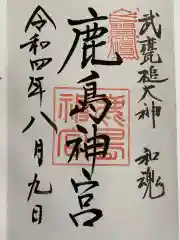 武甕槌大神 和魂
鹿島神宮
令和四年八月九日